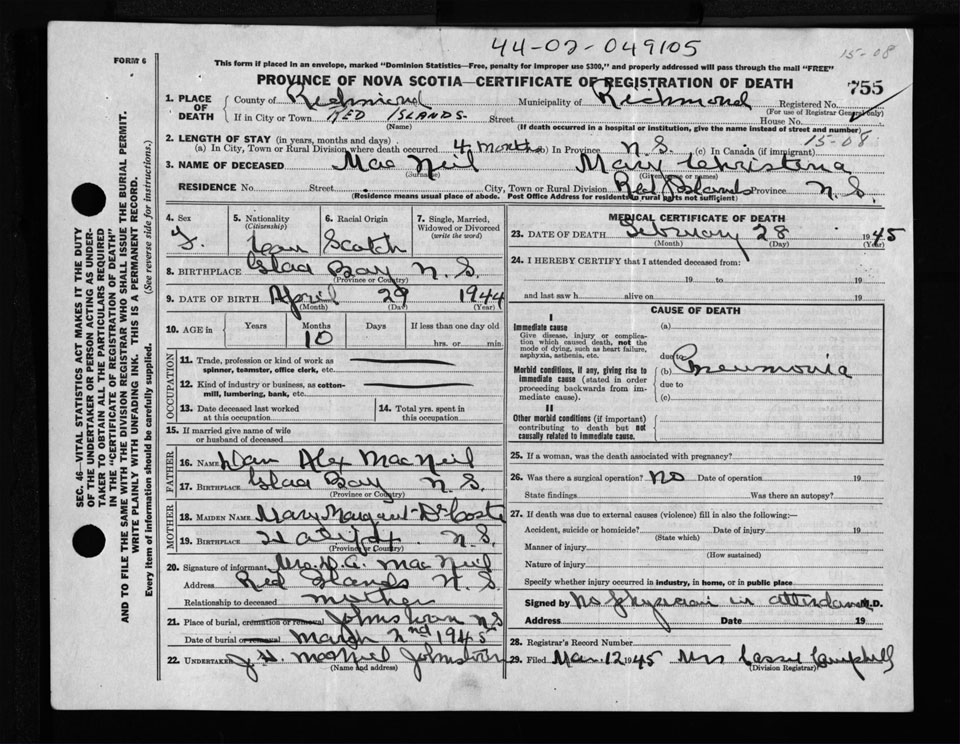 44-02-049105
15-08
FORM 6
This form if placed in an envelope, marked "Dominion Statistics—Free, penalty for improper use $300," and properly addressed will pass through the mail "FREE"
PROVINCE OF NOVA SCOTIA—CERTIFICATE OF REGISTRATION OF DEATH
755
1. PLACE OF DEATH
County of Richmond Municipality of Richmond Registered No.
(For use of Registrar General only)
If in City or Town RED ISLANDS. Street House No.
(Name) (If death occurred in a hospital or institution, give the name instead of street and number)
15-08
2. LENGTH OF STAY (in years, months and days).
(a) In City, Town or Rural Division where death occurred 4 months (b) In Province N.S. (c) In Canada (if immigrant)
3. NAME OF DECEASED Mac Neil Mary Christena
(Surname) (Given or names)
RESIDENCE No. Street City, Town or Rural Division Red Islands Province N.S.
(Residence means usual place of abode. Post Office Address for residents in rural parts not sufficient)
4. Sex
5. Nationality
(Citizenship)
6. Racial Origin
7. Single, Married, Widowed or Divorced
(write the word)
Scotch
8. BIRTHPLACE Glace Bay N.S.
(Province or Country)
9. DATE OF BIRTH April 29 1944
(Month) (Day) (Year)
10. AGE in Years Months Days If less than one day old
10 hrs. or min.
OCCUPATION
11. Trade, profession or kind of work as spinner, teamster, office clerk, etc.
12. Kind of industry or business, as cotton-mill, lumbering, bank, etc.
13. Date deceased last worked at this occupation
14. Total yrs. spent in this occupation
15. If married give name of wife or husband of deceased
FATHER
16. NAME Dan Alex MacNeil
17. BIRTHPLACE Glace Bay N.S.
(Province or Country)
MOTHER
18. MAIDEN NAME Mary Margaret DeCoste
19. BIRTHPLACE N.S.
(Province or Country)
20. Signature of informant Mrs. D.A. MacNeil
Address Red Islands N.S.
Relationship to deceased mother
21. Place of burial, cremation or removal Johnstown N.S
Date of burial or removal March 2nd 1945
22. UNDERTAKER J.H. MacNeil Johnstown
(Name and address)
MEDICAL CERTIFICATE OF DEATH
23. DATE OF DEATH February 28 1945
(Month) (Day) (Year)
24. I HEREBY CERTIFY that I attended deceased from:
19 to 19
and last saw h alive on 19
CAUSE OF DEATH
I
Immediate cause
Give disease, injury or complication which caused death, not the mode of dying, such as heart failure, asphyxia, asthenia, etc.
(a)
due to
Morbid conditions, if any, giving rise to immediate cause (stated in order proceeding backwards from immediate cause).
(b) Pneumonia
due to
(c)
II
Other morbid conditions (if important) contributing to death but not causally related to immediate cause.
25. If a woman, was the death associated with pregnancy?
26. Was there a surgical operation? No Date of operation 19
State findings Was there an autopsy?
27. If death was due to external causes (violence) fill in also the following:—
Accident, suicide or homicide? Date of injury 19
(State which)
Manner of injury
(How sustained)
Nature of injury
Specify whether injury occurred in industry, in home, or in public place
Signed by No physician in attendance M.D.
Address Date 19
28. Registrar's Record Number
29. Filed Mar. 12 1945 Mrs Cassie Campbell
(Division Registrar)
SEC. 46—VITAL STATISTICS ACT MAKES IT THE DUTY
OF THE UNDERTAKER OR PERSON ACTING AS UNDER-
TAKER TO OBTAIN ALL THE PARTICULARS REQUIRED
IN THE "CERTIFICATE OF REGISTRATION OF DEATH"
AND TO FILE THE SAME WITH THE DIVISION REGISTRAR WHO SHALL ISSUE THE BURIAL PERMIT.
WRITE PLAINLY WITH UNFADING INK. THIS IS A PERMANENT RECORD.
Every item of information should be carefully supplied. (See reverse side for instructions.)